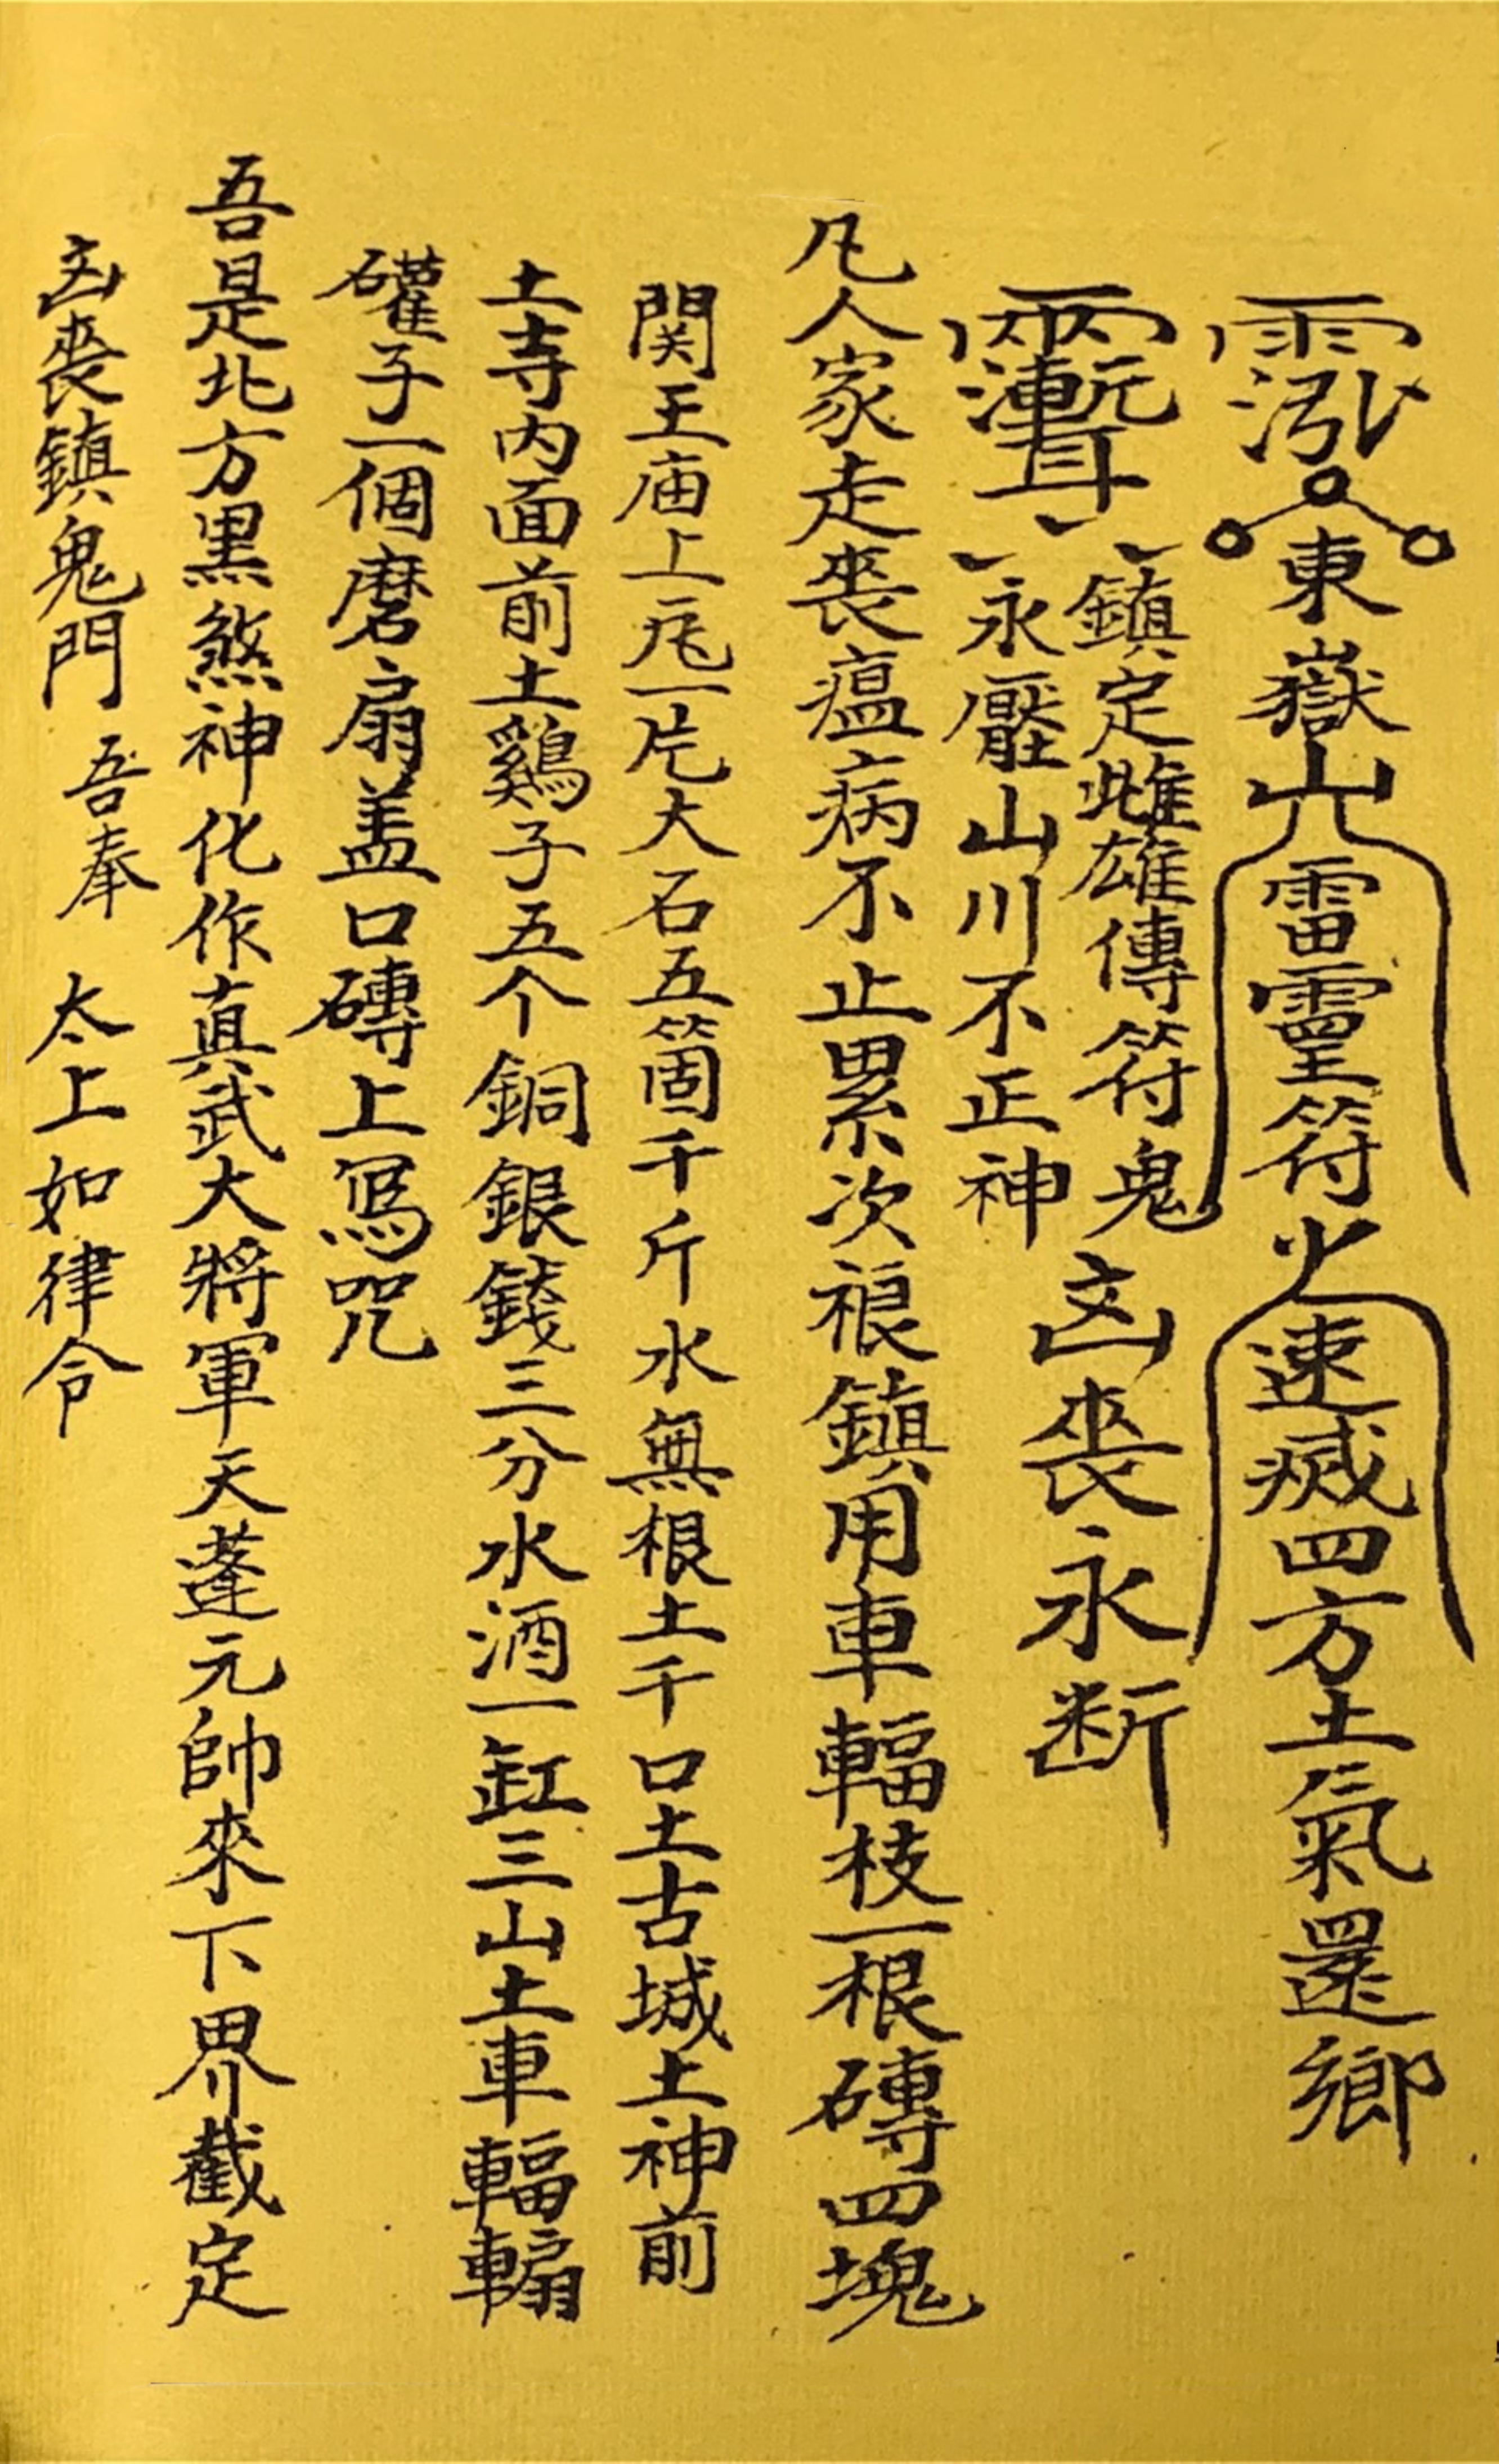 東嶽山雷靈符火速滅四方土氣還鄉
鎮定雌雄傳符鬼
永壓山川不正神
凶喪永断
凡人家走喪瘟病不止累次禳鎮用車輻枝一根磚四塊
関王庙上瓦一片大石五箇千斤水無根土千口土古城土神前
土寺内面前土鷄子五个銅銀錢三分水酒一缸三山土車輻
子一個磨扇盖口磚上寫咒
吾是北方黑煞神化作真武大將軍天蓬元帥來下界截定
凶喪鎮鬼門 吾奉 太上如律令